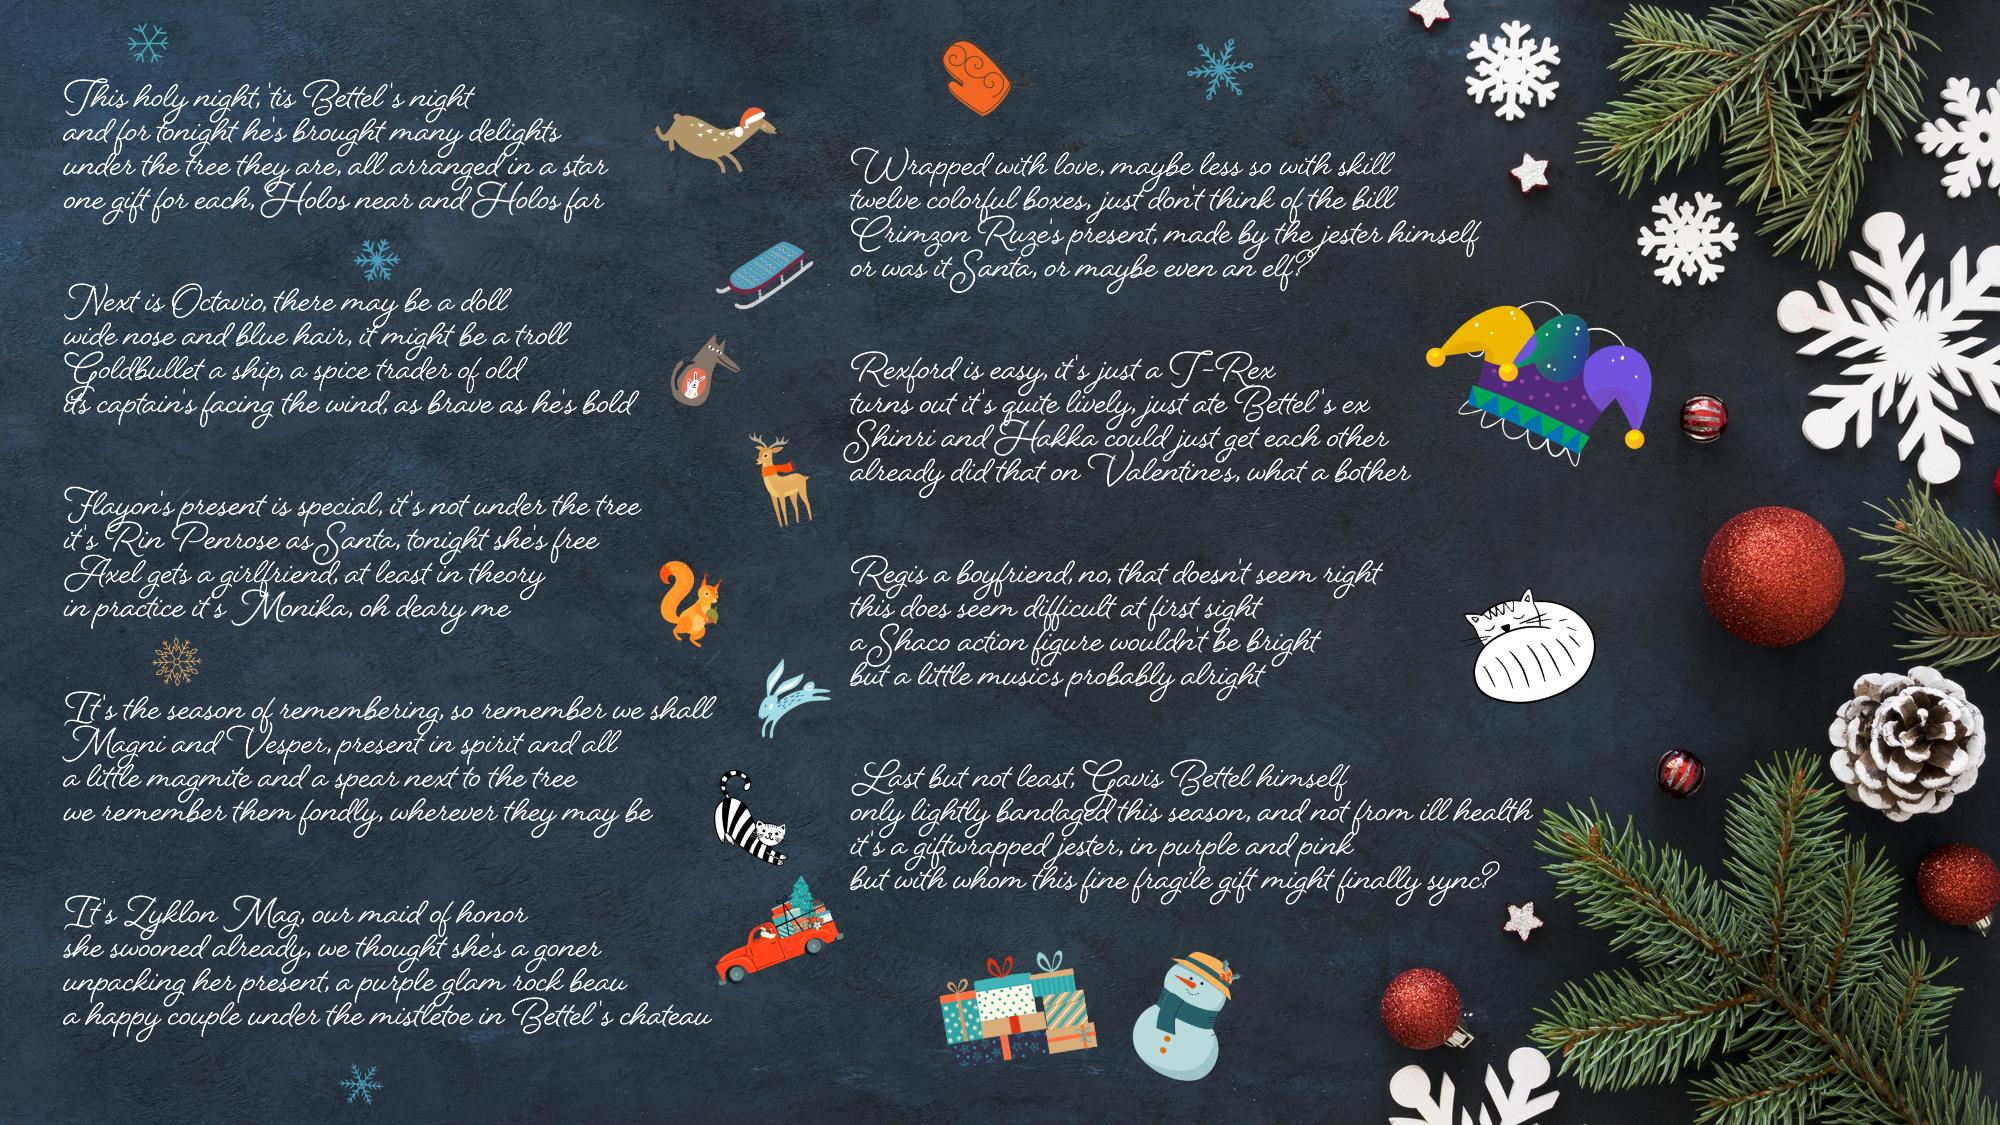 This holy night, 'tis Bettel's night
and for tonight he's brought many delights
under the tree they are, all arranged in a star
one gift for each, Holos near and Holos far
Next is Octavio, there may be a doll
wide nose and blue hair, it might be a troll
Goldbullet a ship, a spice trader of old
its captain's facing the wind, as brave as he's bold
Flayon's present is special, it's not under the tree
it's Rin Penrose as Santa, tonight she's free
Axel gets a girlfriend, at least in theory
in practice it's Monika, oh deary me
It's the season of remembering, so remember we shall
Magni and Vesper, present in spirit and all
a little magmite and a spear next to the tree
we remember them fondly, wherever they may be
It's Zyklon Mag, our maid of honor
she swooned already, we thought she's a goner
unpacking her present, a purple glam rock beau
a happy couple under the mistletoe in Bettel's chateau
Wrapped with love, maybe less so with skill
twelve colorful boxes, just don't think of the bill
Crimzon Ruze's present, made by the jester himself
or was it Santa, or maybe even an elf?
Rexford is easy, it's just a T-Rex
turns out it's quite lively, just ate Bettel's ex
Shinri and Hakka could just get each other
already did that on Valentine's, what a bother
Regis a boyfriend, no, that doesn't seem right
this does seem difficult at first sight
a Shaco action figure wouldn't be bright
but a little music's probably alright
Last but not least, Gavis Bettel himself
only lightly bandaged this season, and not from ill health
it's a giftwrapped jester, in purple and pink
but with whom this fine fragile gift might finally sync?